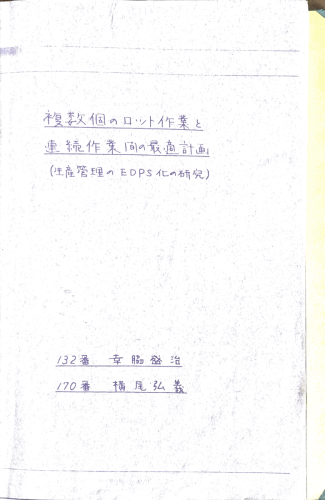 複数個のロット作業と
連続作業間の最適計画
(生産管理のEDPS化の研究)
132番 幸脇 治
170番 横尾弘義